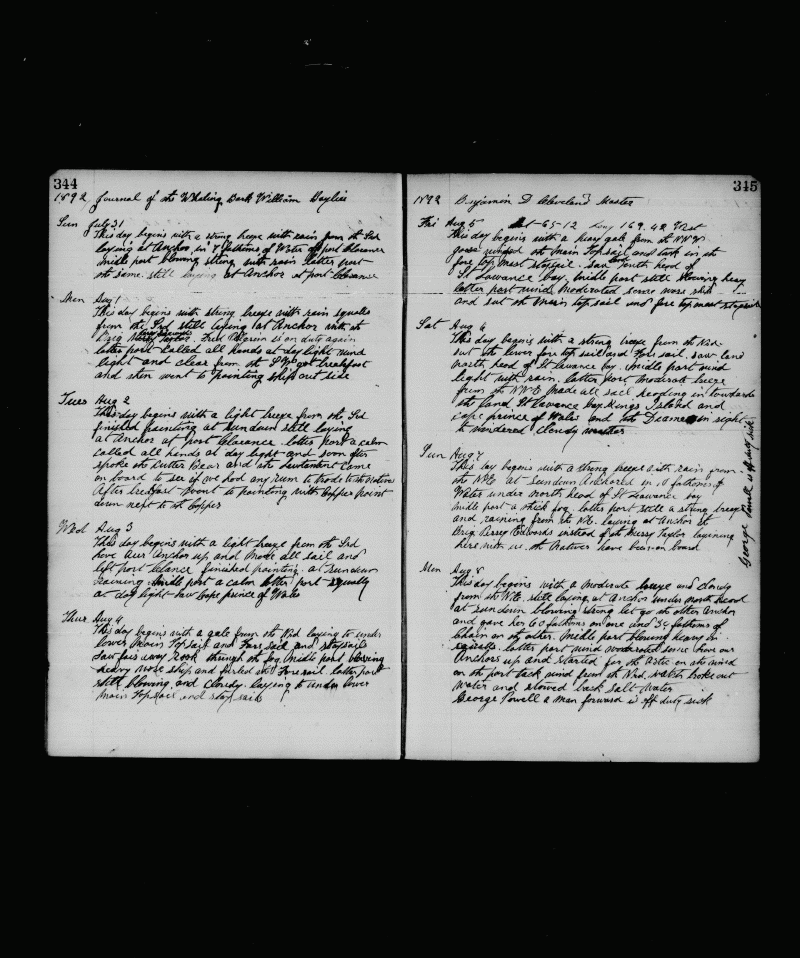 344
1892 Journal of the Whaling Bark William Baylies
Sun July 31
This day begins with a strong breeze with rain from the Srd
laying at Anchor, in 7 fathoms of Water off port Clarence
midle part blowing strong with rain latter part
the same still laying at Anchor at port Clarence
Mon Aug 1
This day begins with strong breeze with rain squalls
from the Srd still laying at Anchor with the
Brig Fred Pilgrim is on duty again
latter part Called all hands at day light wind
light and clear from the got breakfast
and then went to painting ship out side
Tues Aug 2
This day begins with a light breeze from the Srd
finished painting at sundown still laying
at Anchor at port Clarence latter part a calm
called all hands at day light and soon after
spoke the Cutter Bear and the Leutenant came
on board to see if we had any rum to trade to the Natives
After breakfast went to painting with Copper paint
down next to the Copper
Wed Aug 3
This day begins with a light breeze from the Srd
hove our Anchor up and made all sail and
left port Clarence finished painting. at Sundown
raining. midle part a calm latter part squally
at day light saw Cape prince of Wales
Thur Aug 4
This day begins with a gale from the Nrd laying to under
lower Main Topsail and Fore sail and staysails
Saw fair away Rock through the fog. Midle part blowing
heavy wore ship and furled the Fore sail latter part
still blowing and cloudy. laying to under lower
Main Topsail and stay sails
345
1892 Benjamin D Cleveland Master
Fri Aug 5 Lat 65-12 Long 169.42 West
This day begins with a heavy gale from the NNW
the Main Topsail and took in the
fore top Mast staysail. Saw land North head of
St Lawance bay. midle part still blowing heavy
latter part wind moderated some wore ship
and set the Main topsail and fore top mast staysail
Sat Aug 6
This day begins with a strong breeze from the Nrd
set the lower fore top sail and Fore sail. saw land
north head of St Lawance bay. midle part wind
light with rain. latter part moderate breeze
from the NNE Made all sail heading in towards
the land St Lawance bay. Kings Island and
cape prince of Wales and the Diamede in sight
to windered cloudy weather
Sun Aug 7
This day begins with a strong breeze with rain from
the NE at Sundown Anchored in 10 fathoms of
Water under north head of St Lawance bay
midle part a thick fog latter part still a strong breeze
and raining from the NE. laying at Anchor the
Brig Percy Edwards instead of the Mary Taylor laying
here with us. the Natives have been on board
Mon Aug 8
This day begins with a moderate breeze and cloudy
from the N.E. still laying at Anchor under North Head
at sundown blowing strong let go the other Anchor
and gave her 60 fathoms on one and 34 fathoms of
Chain on the other. midle part blowing heavy in
squalls. latter part wind moderated some hove our
Anchors up and started for the Artic on the wind
on the port tack wind from the Nrd watch broke out
Water and stowed back salt Water
George Powell a man forward is off duty sick
George Powell is off duty sick